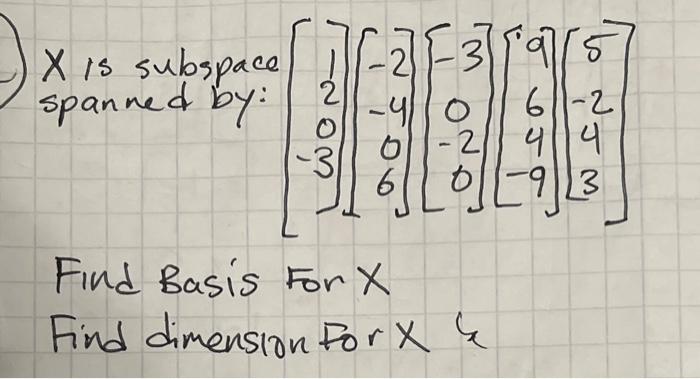 X is subspace
spanned by:
1 -2 -3 9 5
2 -4 0 6 -2
0 0 -2 4 4
-3 6 0 -9 3
Find Basis For X
Find dimension For X